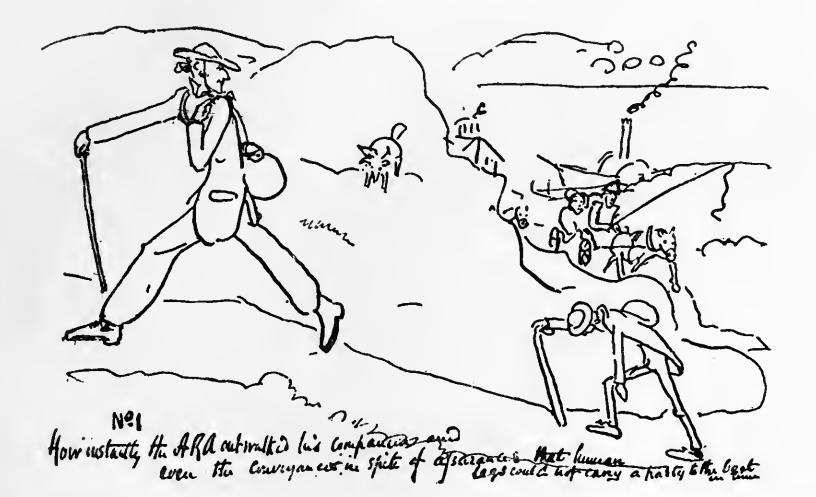 No 1
How instantly the ARA outwalked his companions and
even the conveyances in spite of assurances that human
legs could not carry a party to the boat
in time